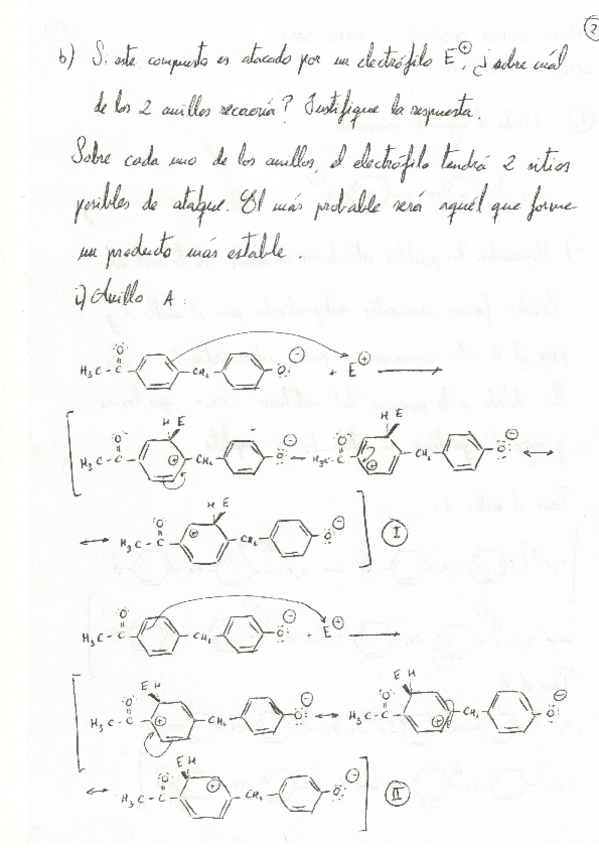 2
b) Si este compuesto es atacado por un electrófilo E⊕, ¿sobre cuál
de los 2 anillos recaería? Justifique la respuesta.
Sobre cada uno de los anillos, el electrófilo tendrá 2 sitios
posibles de ataque. El más probable será aquél que forme
un producto más estable.
i) Anillo A:
H₃C-C O CH₂ O ⊖ + E⊕
H E H E
H₃C-C O ⊕ CH₂ O ⊖ H₃C-C O ⊕ CH₂ O ⊖
H E
H₃C-C O ⊕ CH₂ O ⊖ I
H₃C-C O CH₂ O ⊖ + E⊕
E H E H
H₃C-C O ⊕ CH₂ O ⊖ H₃C-C O ⊕ CH₂ O ⊖
E H
H₃C-C O ⊕ CH₂ O ⊖ II